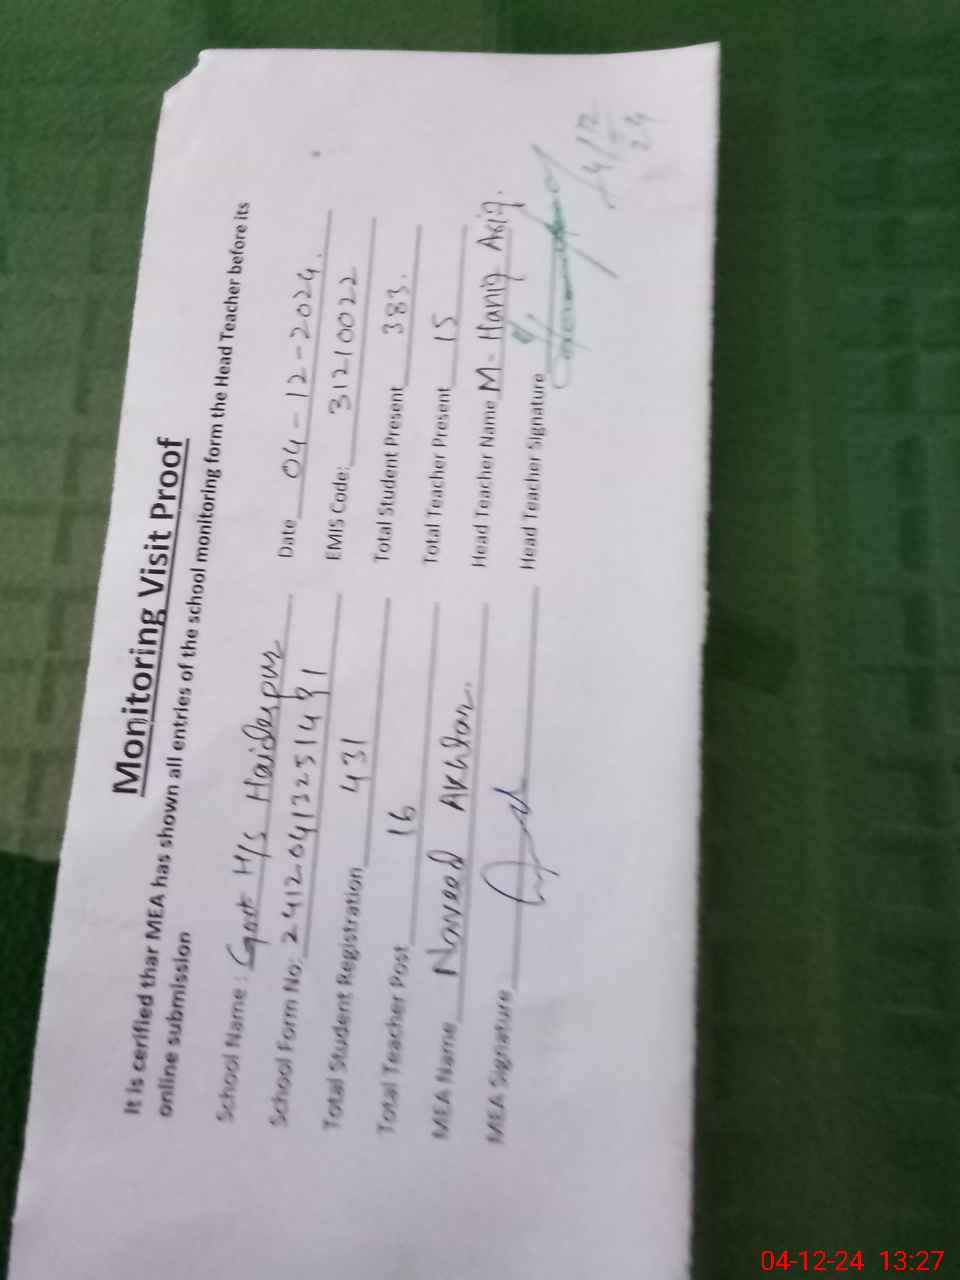 Monitoring Visit Proof
It is cerified thar MEA has shown all entries of the school monitoring form the Head Teacher before its
online submission
School Name : Govt H/S Haiderpur Date 04-12-2024.
School Form No: 2412-0413251491 EMIS Code: 31210022
Total Student Registration 431 Total Student Present 383.
Total Teacher Post 16 Total Teacher Present 15
MEA Name Naveed Akhtar. Head Teacher Name M- Haniq Asif.
MEA Signature Head Teacher Signature
4/12
24
04-12-24 13:27